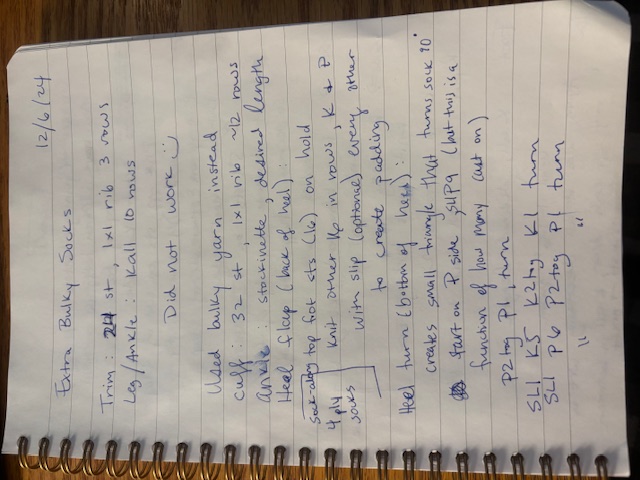 12/6/24
Extra Bulky Socks
Trim : 24 st , 1x1 rib 3 rows
Leg/Ankle : Kall 10 rows
Did not work :)
Used bulky yarn instead
Cuff : 32 st , 1x1 rib ~12 rows
ankle : stockinette , desired length
Heel flap (back of heel) :
sock-along top fot sts (16) on hold
4 ply knit other 16 in rows, K & P
socks with slip (optional) every other
to create padding
Heel turn (bottom of heel) :
creates small triangle that turns sock 90°
start on P side , SL1P9 (but this is a
function of how many cast on)
P2tog P1 , turn
SL1 K5 K2tog K1 turn
SL1 P6 P2tog P1 turn
" "